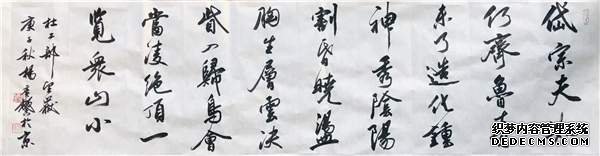 岱宗夫如
何齊魯青
未了造化鍾
神秀陰陽
割昏曉盪
胸生層雲決
眥入歸鳥會
當凌絕頂一
覽衆山小
杜工部望嶽
庚子秋楊於京
织梦内容管理系统
DEDECMS.COM